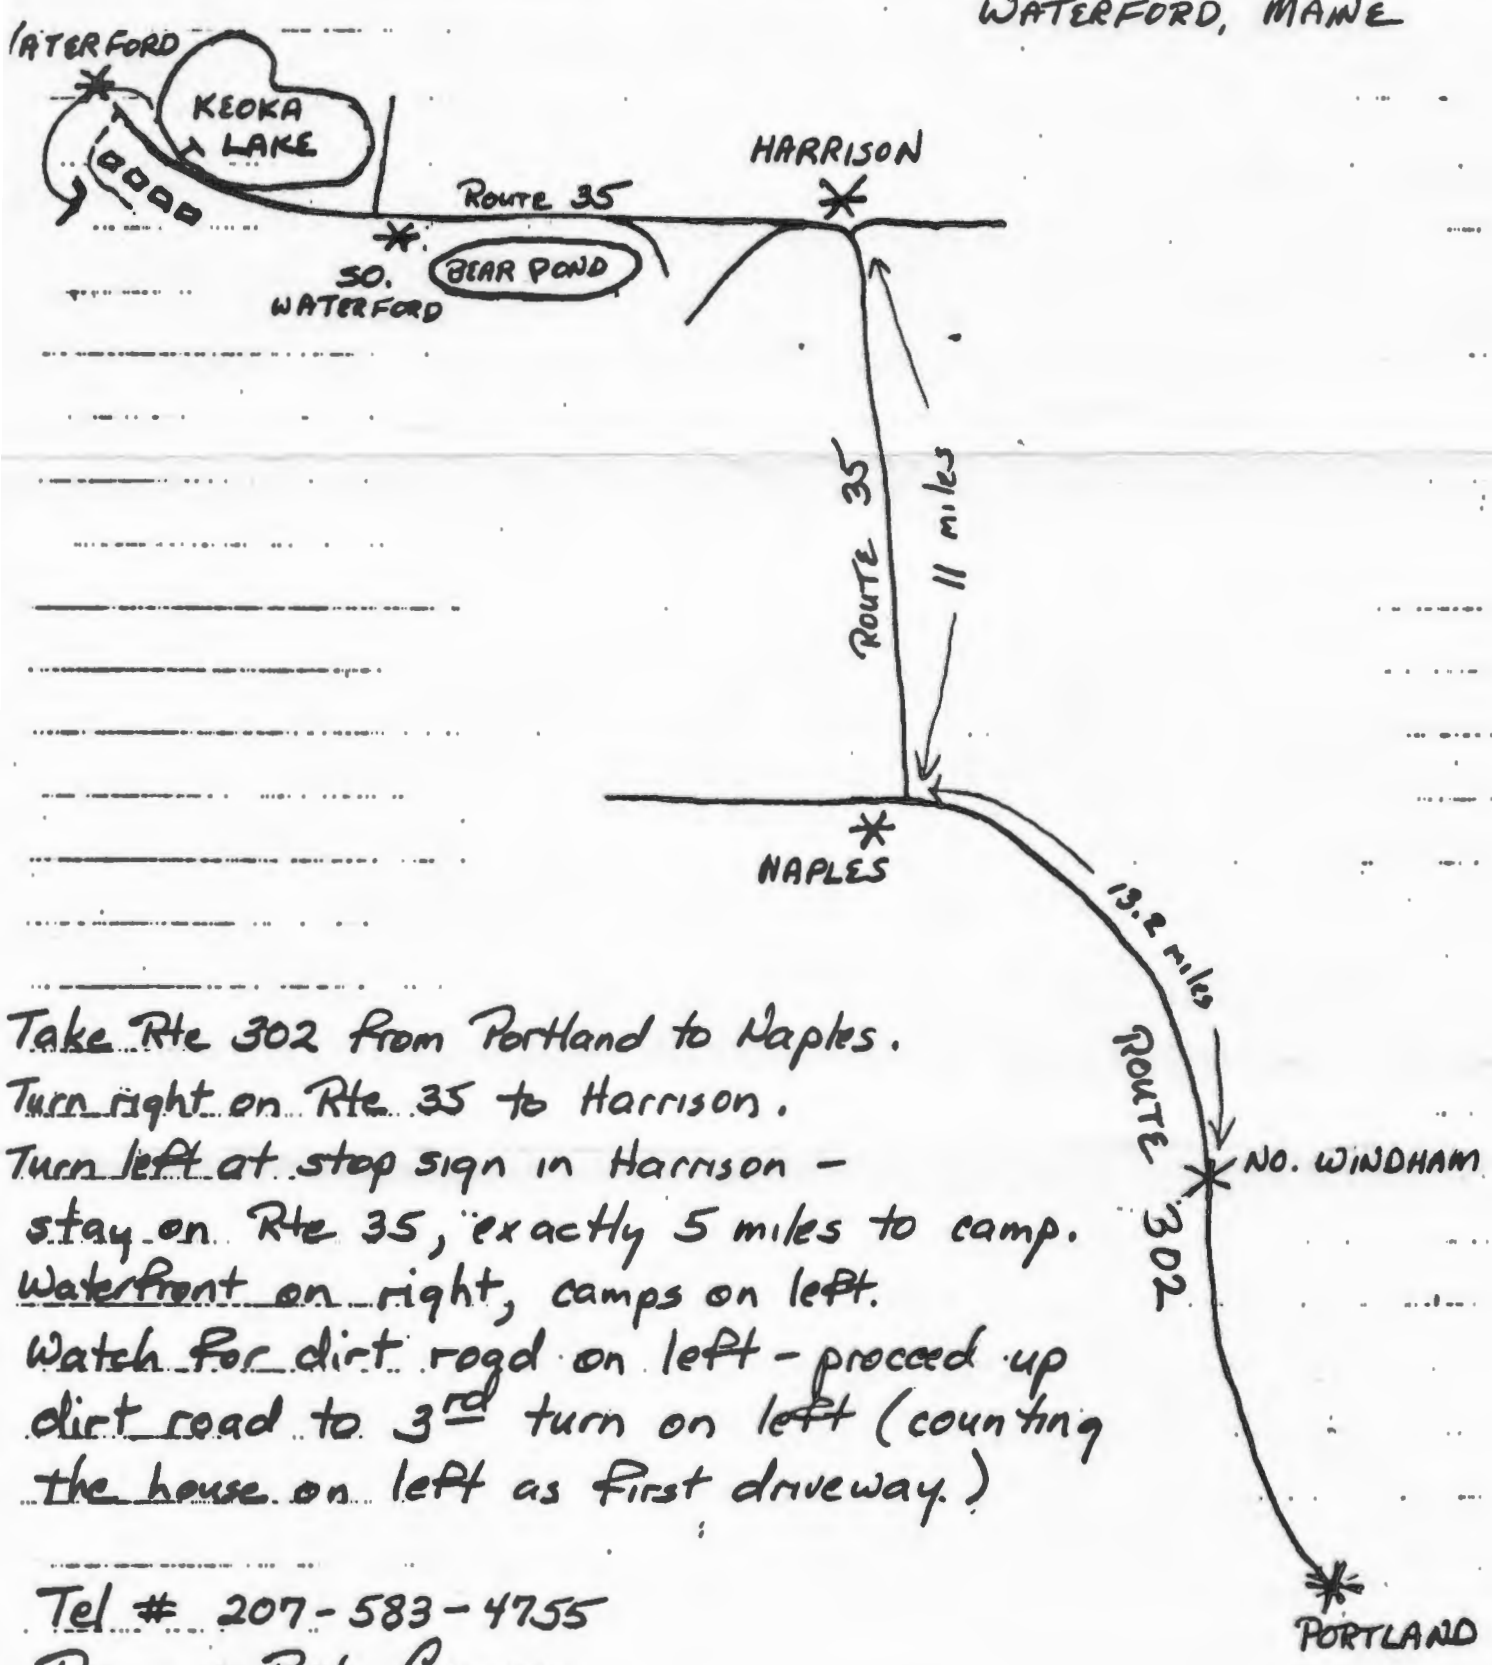 WATERFORD, MAINE
ATERFORD
KEOKA
LAKE
HARRISON
ROUTE 35
SO.
WATERFORD
BEAR POND
ROUTE 35
11 miles
NAPLES
13.2 miles
ROUTE 302
NO. WINDHAM
Take Rte 302 from Portland to Naples.
Turn right on Rte 35 to Harrison.
Turn left at stop sign in Harrison -
stay on Rte 35, exactly 5 miles to camp.
Waterfront on right, camps on left.
Watch for dirt road on left - proceed up
dirt road to 3rd turn on left (counting
the house on left as first driveway.)
Tel # 207-583-4755
PORTLAND